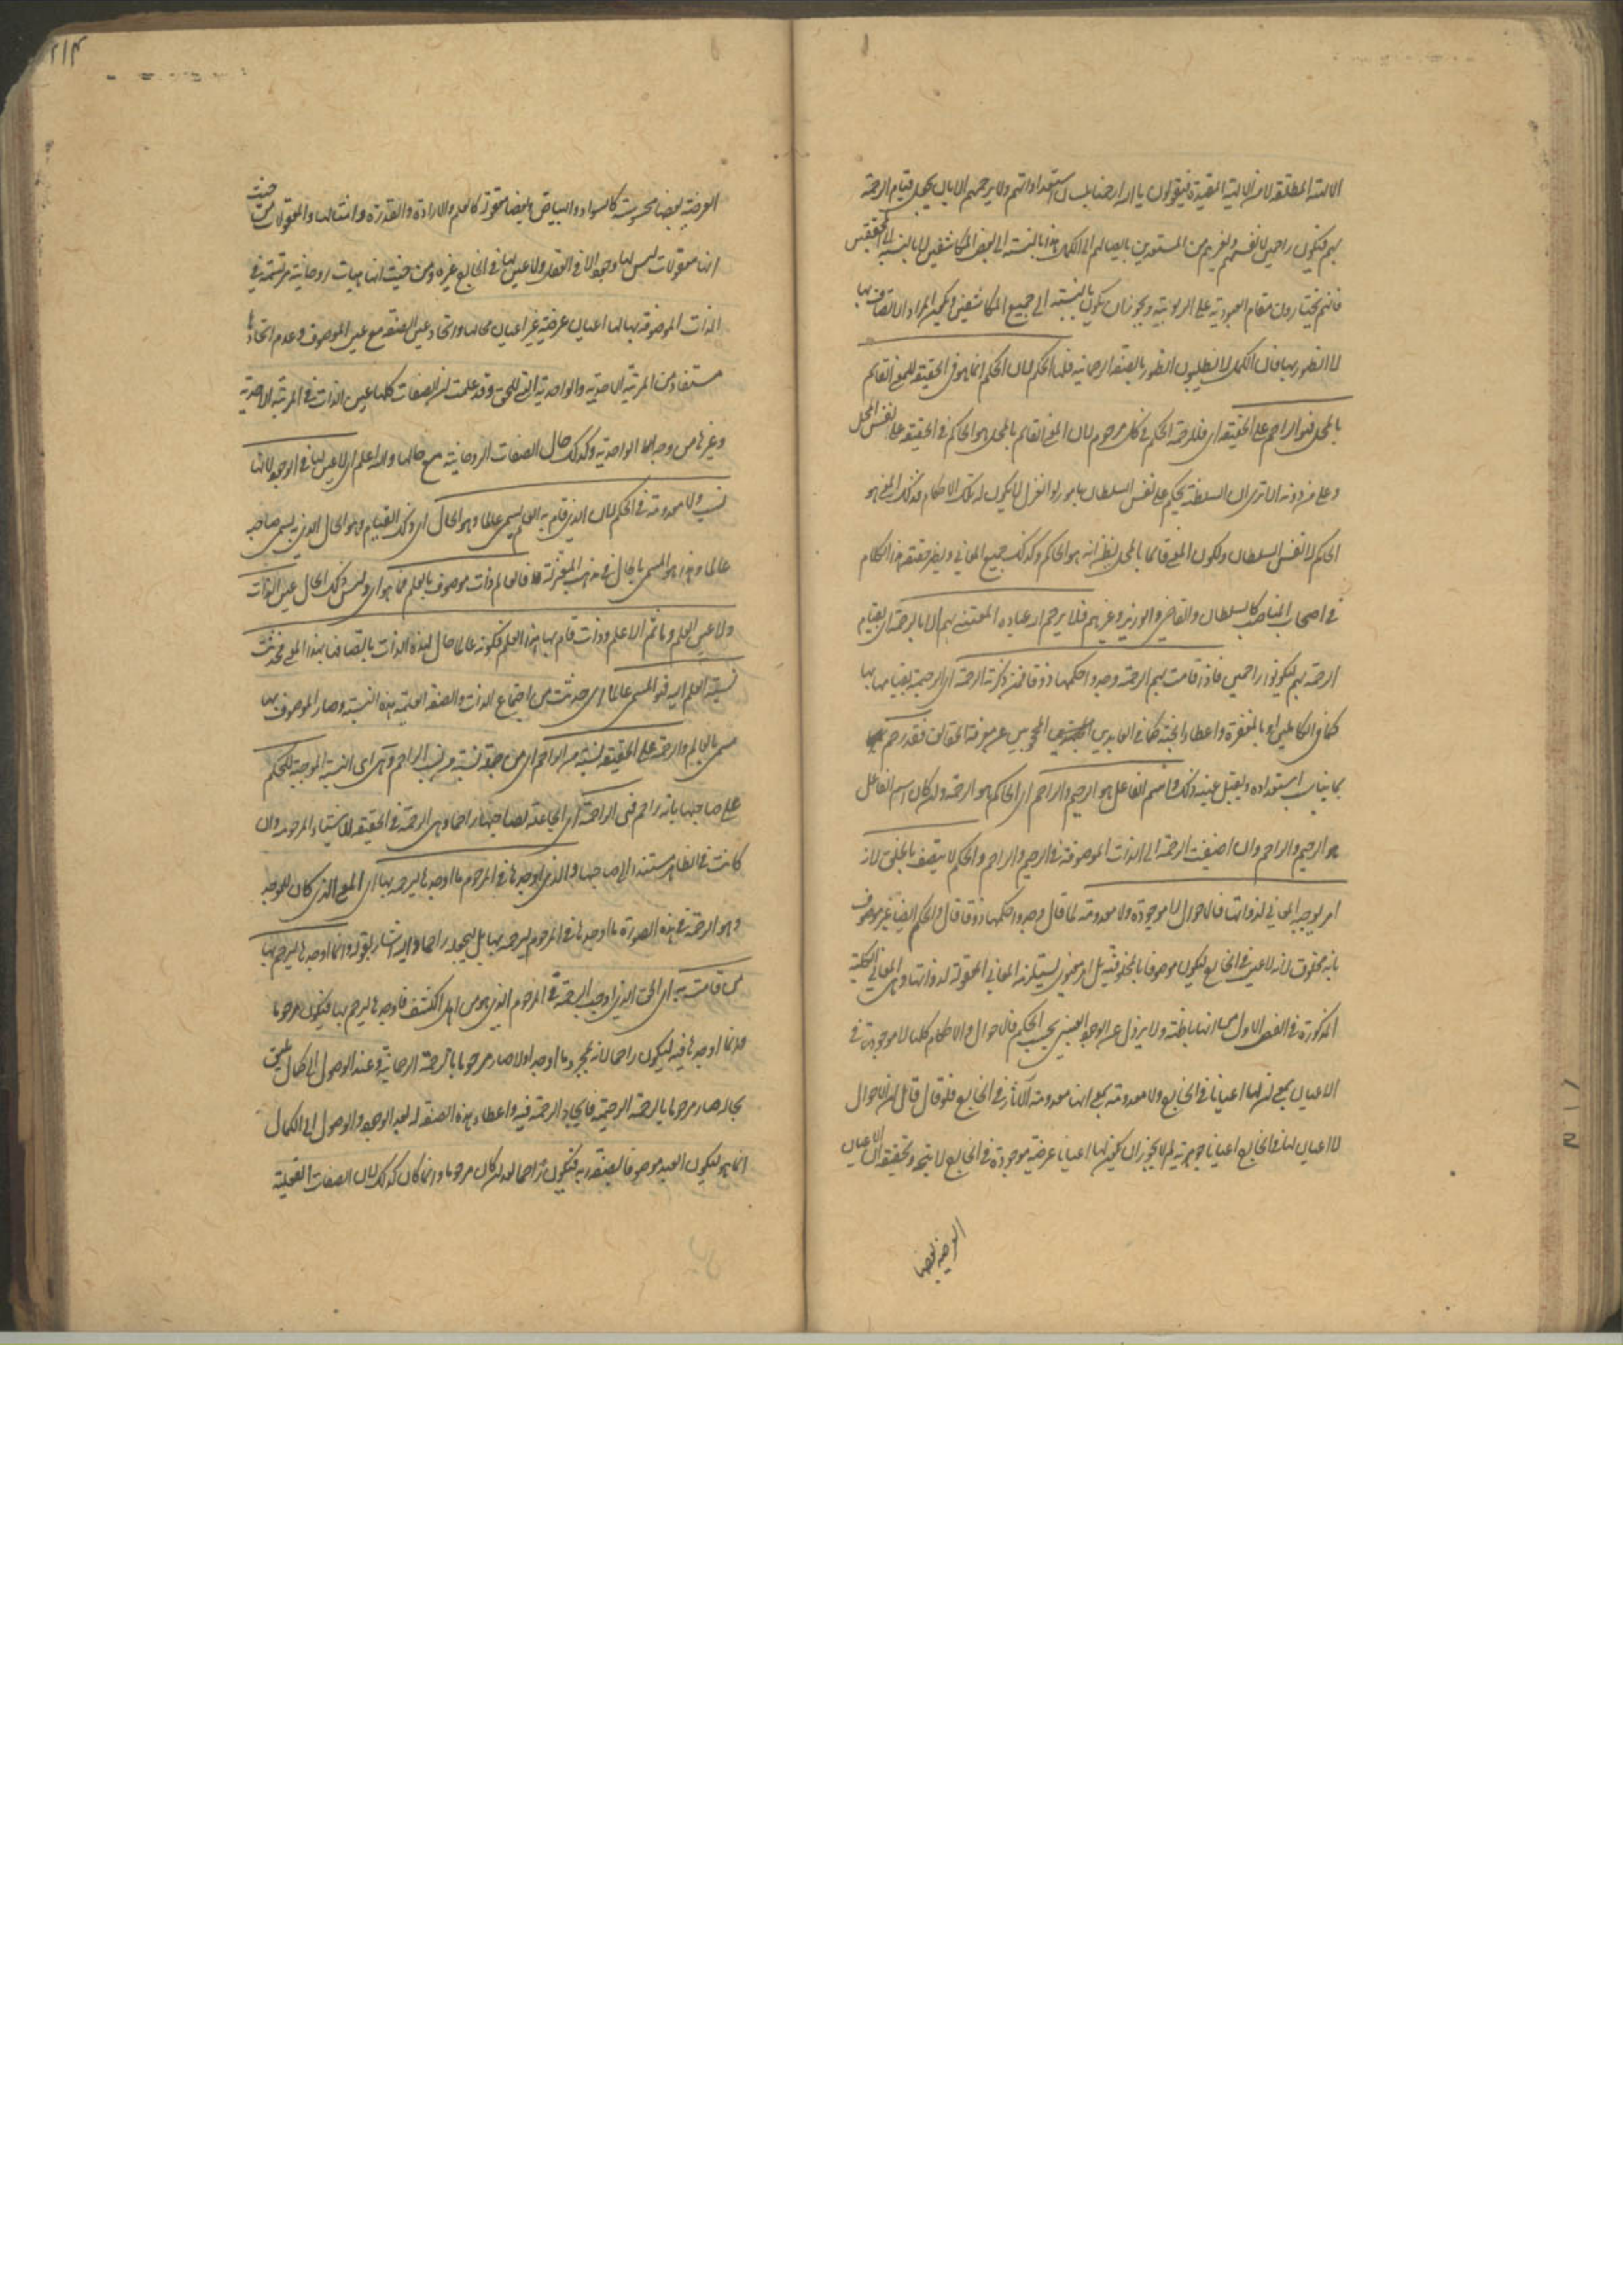 الالهية المطلقة لا من الالهية المقيدة فيقولون يا الله ارحمنا بلسان استعداداتهم ولا يرحمهم الا بان يجعل قيام الرحمة
بهم فيكون راحمين لانفسهم ولغيرهم من المستعدين بايصالهم الى الكمال هذا بالنسبة الى بعض المكاشفين لا بالنسبة الى المحققين
فانهم يختارون مقام العبودية على الربوبية ويجوز ان يكون بالنسبة الى جميع المكاشفين ويكون المراد الاتصاف بها
لا الظهور بها فان الكمل لا يطلبون الظهور بالصفة الرحمانية فلها الحكم لان الحكم انما هو في الحقيقة للمعنى القائم
بالمحل فهو الراحم على الحقيقة اي فللرحمة الحكم في كل مرحوم لان المعنى القائم بالمحل هو الحاكم في الحقيقة على نفس المحل
وعلى من دونه الا ترى ان السلطنة يحكم على نفس السلطان بامور لو انعزل لا يكون له تلك الاحكام فذلك المعنى هو
الحاكم لا نفس السلطان ولكون المعنى قائما بالمحل يظن انه هو الحاكم وكذلك جميع المعاني ويظهر حقيقة هذا الكلام
في اصحاب المناصب كالسلطان والقاضي والوزير وغيرهم فلا يرحم الله عباده المعتنى بهم الا بالرحمة اي بقيام
الرحمة بهم ليكونوا راحمين فاذا قامت بهم الرحمة وجدوا حكمها ذوقا فمن ذكرته الرحمة اي الرحيمية بقيامها بها
كما في الكاملين او بالمغفرة واعطاء الجنة كما في العابدين المحجوبين عن معرفة الحقائق فقد رحم
بما يناسب استعداده ويقبل عينه ذلك واسم الفاعل هو الرحيم والراحم اي الحاكم هو الرحمة وان كان اسم الفاعل
هو الرحيم والراحم وان اضيفت الرحمة الى الذات الموصوفة في الرحيم والراحم والحكم لا يتصف بالخلق لانه
امر يوجبه المعاني لذواتها فالاحوال لا موجودة ولا معدومة لما قال وجدوا حكمها ذوقا قال والحكم ايضا غير موصوف
بانه مخلوق لانه لا عين في الخارج ليكون موصوفا بالمخلوقية بل امر معنوي يستلزمه المعاني المعقولة لذواتها وهي المعاني الكلية
المذكورة في الفص الاول من انها باطنة ولا يزول عن الوجود العيني بحسب الحكم فالاحوال والاحكام كلها لا موجودة في
الاعيان بمعنى ان لها اعيانا في الخارج ولا معدومة بمعنى انها معدومة الآثار في الخارج فلو قال قائل ان الاحوال
لا اعيان لها في الخارج اعيانا جوهرية لم لا يجوز ان يكون لها اعيانا عرضية موجودة في الخارج لا يتجه وتحقيقه ان الاعيان
العرضية بعضها
العرضية بعضها محسوسة كالسواد والبياض وبعضها معقولة كالعلم والارادة والقدرة وامثالها والمعقولات من حيث
انها معقولات ليس لها وجود الا في العقل ولا عين لها في الخارج غيره ومن حيث انها هيئات روحانية مرتسمة في
الذات الموصوفة بها لها اعيان عرضية غير اعيان محالها واتحاد عين الصفة مع عين الموصوف وعدم اتحادها
مستفاد من المرتبة الاحدية والواحدية التي للحق وقد علمت ان الصفات كلها عين الذات في المرتبة الاحدية
وغيرها من وجه لها الواحدية وكذلك حال الصفات الروحانية مع محالها والله اعلم اي لا عين لها في الوجود لانها
نسب ولا معدومة في الحكم لان الذي قام به العلم يسمى عالما وهو الحال اي ذلك القيام وهو الحال الذي به يسمى صاحبه
عالما وهذا هو المسمى بالحال في مذهب المعتزلة فالعالم ذات موصوف بالعلم فما هو اي وليس ذلك الحال عين الذات
ولا عين العلم وما ثم الا علم وذات قام بها هذا العلم فكونه عالما حال لهذه الذات باتصافها بهذا المعنى فحدثت
نسبة العلم اليه فهو المسمى عالما اي حدثت من اجتماع الذات والصفة العلمية هذه النسبة وصار الموصوف بها
مسمى بالعالم والرحمة على الحقيقة نسبة من الراحم اي من جملة نسبة من نسب الراحم وهي اي النسبة الموجبة للحكم
على صاحبها بانه راحم فهي الراحمة اي الجاعلة لصاحبها راحما وهي الرحمة في الحقيقة للاشياء المرحومة وان
كانت في الظاهر مستندة الى صاحبها والذي اوجدها في المرحوم ما اوجدها ليرحمه بها اي المعنى الذي كان للموجد
وهو الرحمة في هذه الصورة ما اوجدها في المرحوم ليرحمه بها بل ليجعله راحما واليه اشار بقوله وانما اوجدها ليرحم بها
من قامت به اي الحق الذي اوجد الرحمة في المرحوم الذي هو من اهل الكشف فاوجدها ليرحم بها فيكون مرحوما
وانما اوجدها فيه ليكون راحما لانه بمجرد ما اوجد اولا صار مرحوما بالرحمة الرحمانية وعند الوصول الى كمال يليق
بحاله صار مرحوما بالرحمة الرحيمية فايجاد الرحمة فيه واعطاء هذه الصفة له بعد الوجود والوصول الى الكمال
انما هو ليكون العبد موصوفا بصفة ربه فيكون راحما بعد ان كان مرحوما وانما كان كذلك لان الصفات الفعلية